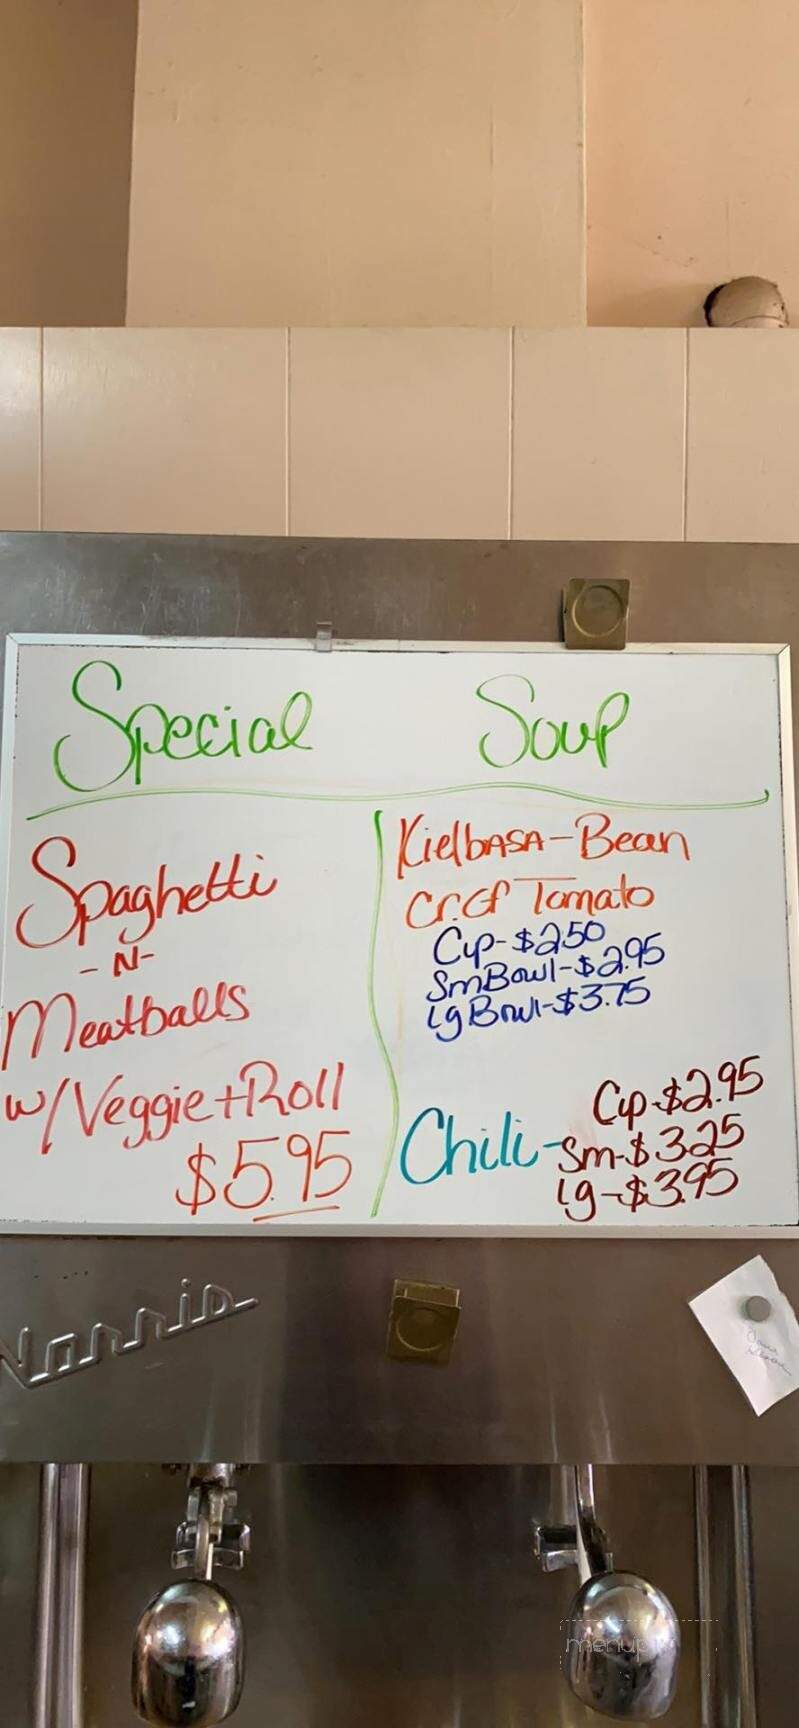 Special
Spaghetti
-N-
Meatballs
w/Veggie+Roll
$5.95
Soup
Kielbasa-Bean
Cr.Of Tomato
Cup-$2.50
SmBowl-$2.95
LgBowl-$3.75
Chili-
Cup-$2.95
Sm-$3.25
Lg-$3.95
Norris